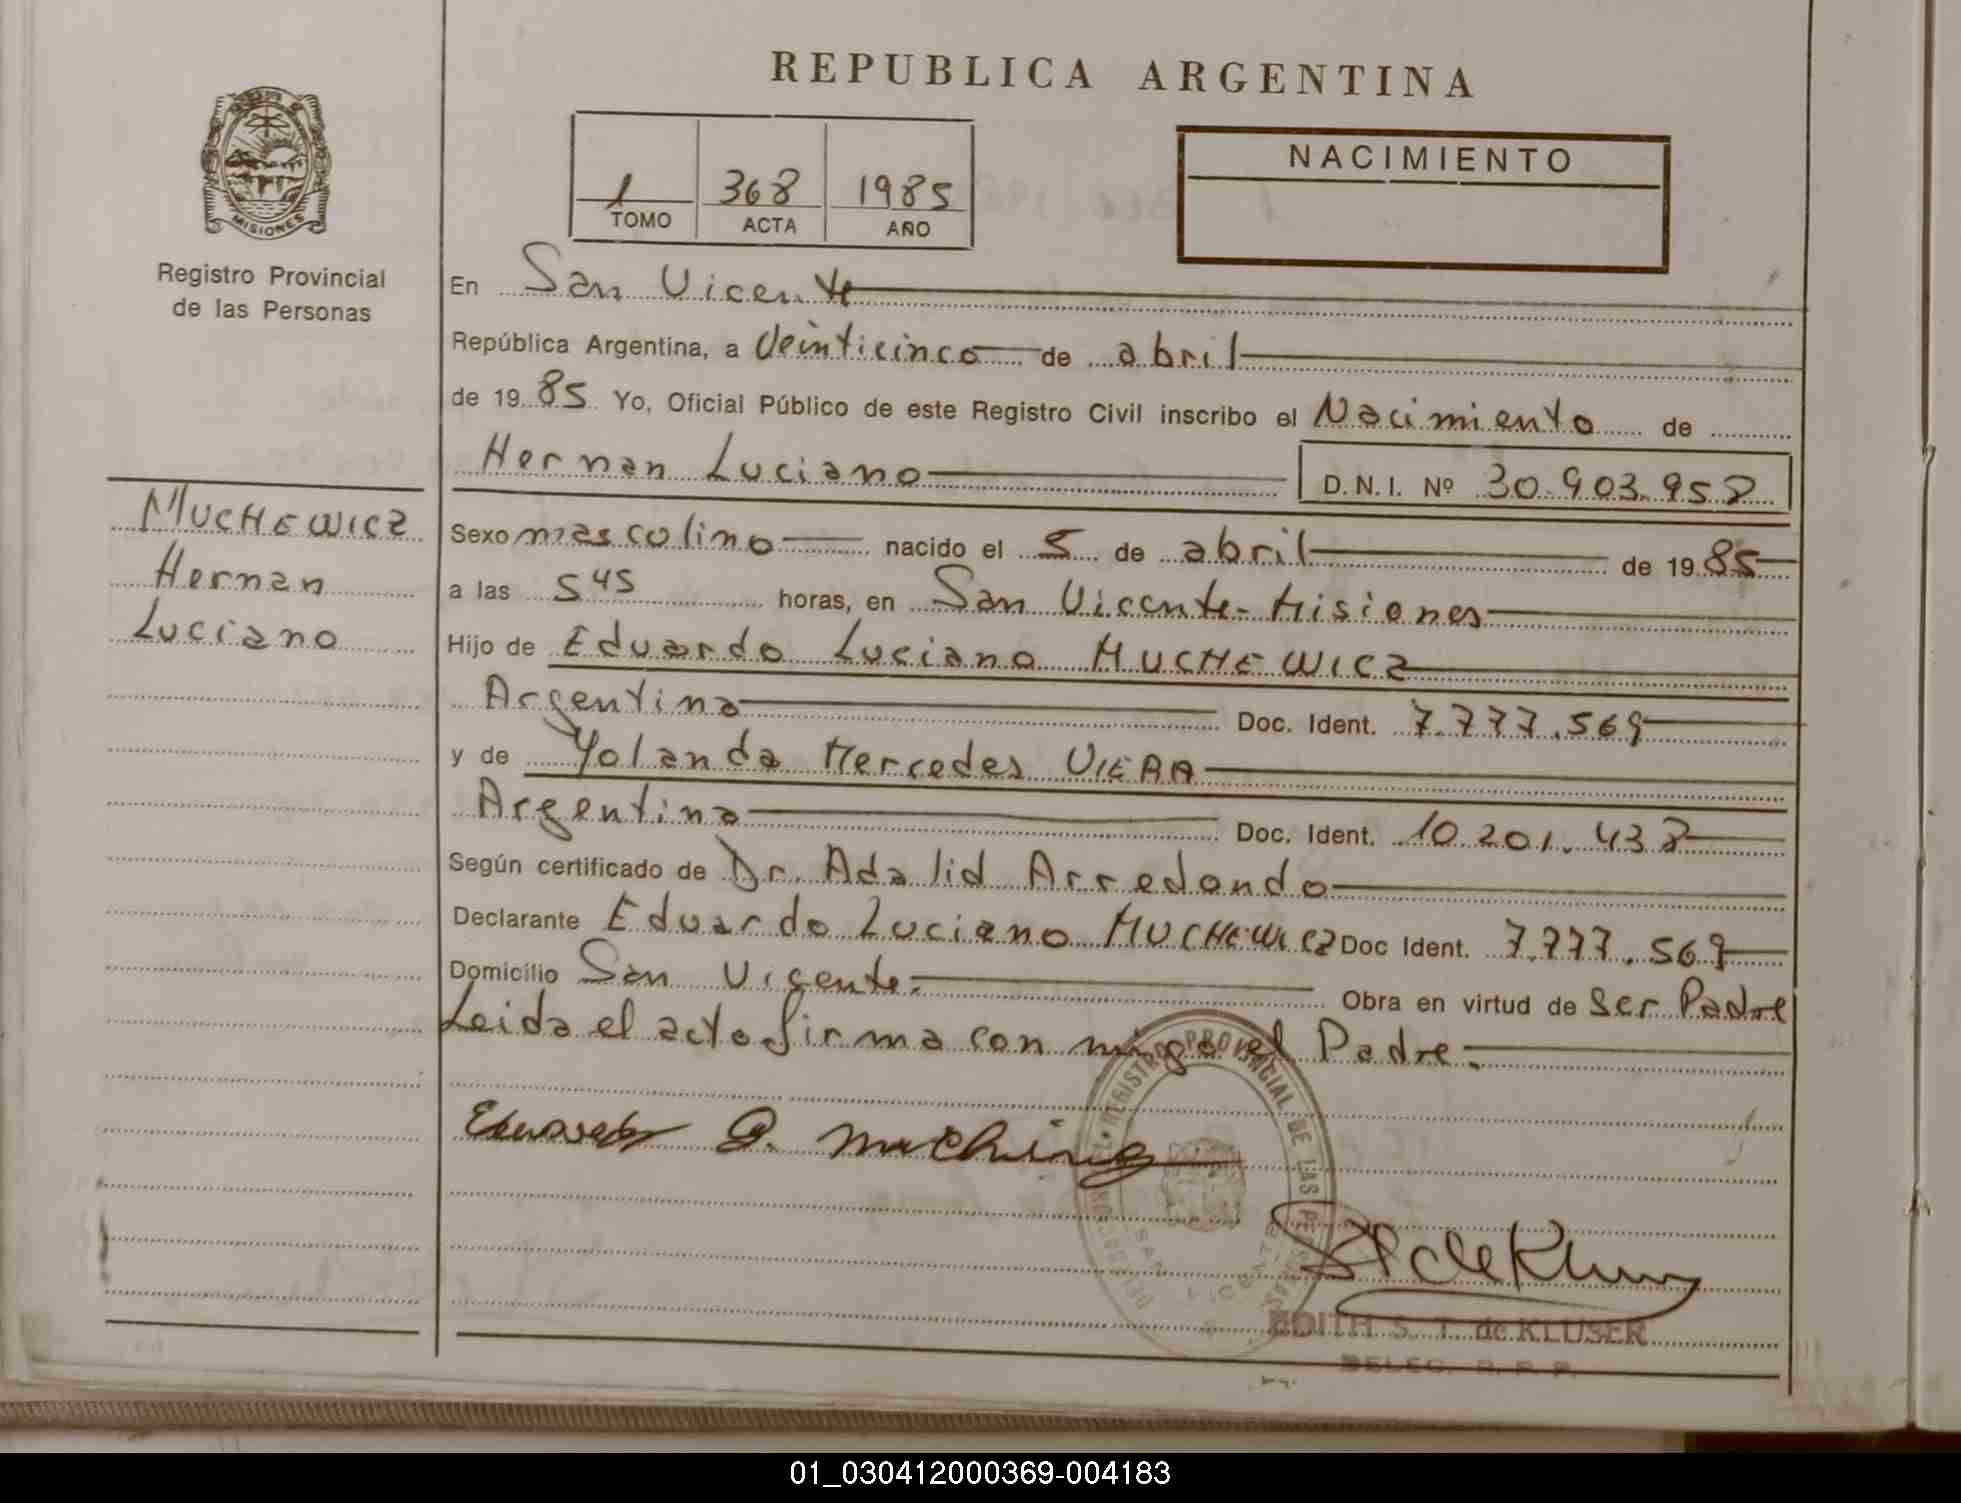 REPUBLICA ARGENTINA
MISIONES
Registro Provincial
de las Personas
1 368 1985
TOMO ACTA AÑO
NACIMIENTO
En San Vicente
República Argentina, a Veinticinco de abril
de 1985 Yo, Oficial Público de este Registro Civil inscribo el Nacimiento de
Hernan Luciano D.N.I. Nº 30.903.958
MUCHEWICZ
Hernan
Luciano
Sexo masculino nacido el 5 de abril de 1985
a las 5 45 horas, en San Vicente - Misiones
Hijo de Eduardo Luciano MUCHEWICZ
Argentina Doc. Ident. 7.777.569
y de Yolanda Mercedes VIERA
Argentina Doc. Ident. 10.201.438
Según certificado de Dr. Adalid Arredondo
Declarante Eduardo Luciano MUCHEWICZ Doc Ident. 7.777.569
Domicilio San Vicente. Obra en virtud de Ser Padre
Leida el acto firma con migo el Padre.
REGISTRO PROVINCIAL DE LAS PERSONAS
SAN VICENTE
EDITH S. T. de KLUSER
DELEG. R. P. P.
01_030412000369-004183